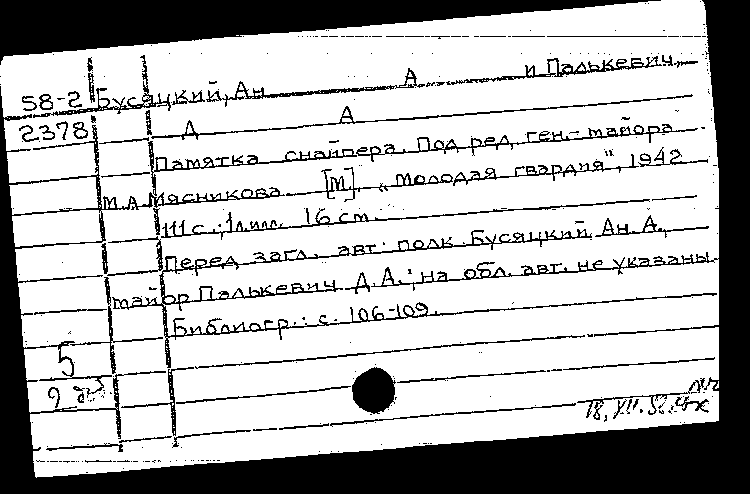 58-2 Бусяцкий, Ан А и Палькевич,
2378 Д А
Памятка снайпера. Под ред. ген.-майора
М.А. Мясникова. [М.], „Молодая гвардия", 1942
111 с.; 1 л. илл. 16 см.
Перед загл. авт: полк. Бусяцкий, Ан. А.,
майор Палькевич Д.А.; на обл. авт. не указаны.
Библиогр.: с. 106-109.
5
2
18, XII. 52.